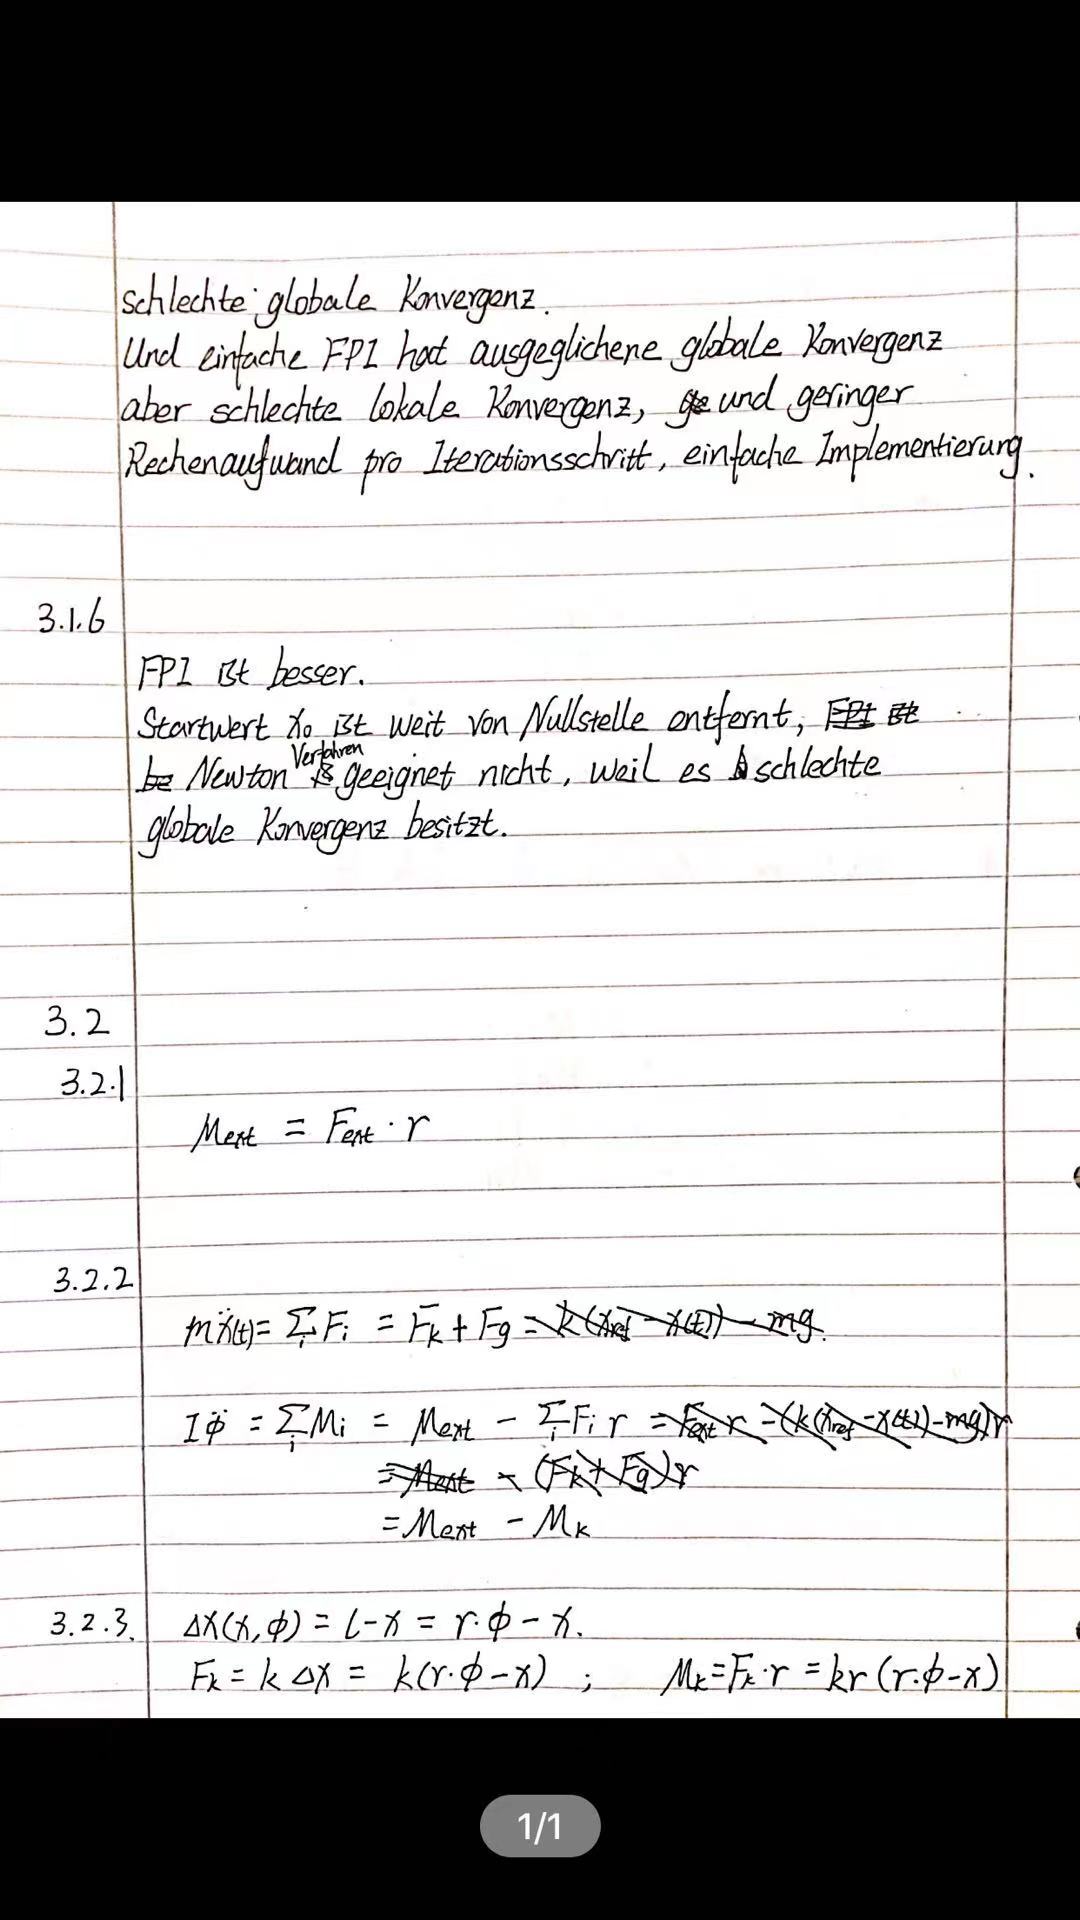 schlechte globale Konvergenz.
Und einfache FPI hat ausgeglichene globale Konvergenz
aber schlechte lokale Konvergenz, ge und geringer
Rechenaufwand pro Iterationsschritt, einfache Implementierung.
3.1.6
FPI ist besser.
Startwert x₀ ist weit von Nullstelle entfernt, FPI ist
be Newton Verfahren is geeignet nicht, weil es schlechte
globale Konvergenz besitzt.
3.2
3.2.1
Mext = Fext · r
3.2.2
mẍ(t) = Σᵢ Fᵢ = Fk + Fg = k(xref - x(t)) - mg.
Iφ̈ = Σᵢ Mᵢ = Mext - Σᵢ Fᵢ r = Fext r - (k(xref - x(t)) - mg)r
= Mext - (Fk + Fg)r
= Mext - Mk
3.2.3. Δx(x, φ) = l - x = r·φ - x.
Fk = k Δx = k(r·φ - x) ; Mk = Fk·r = kr(r·φ - x)
1/1